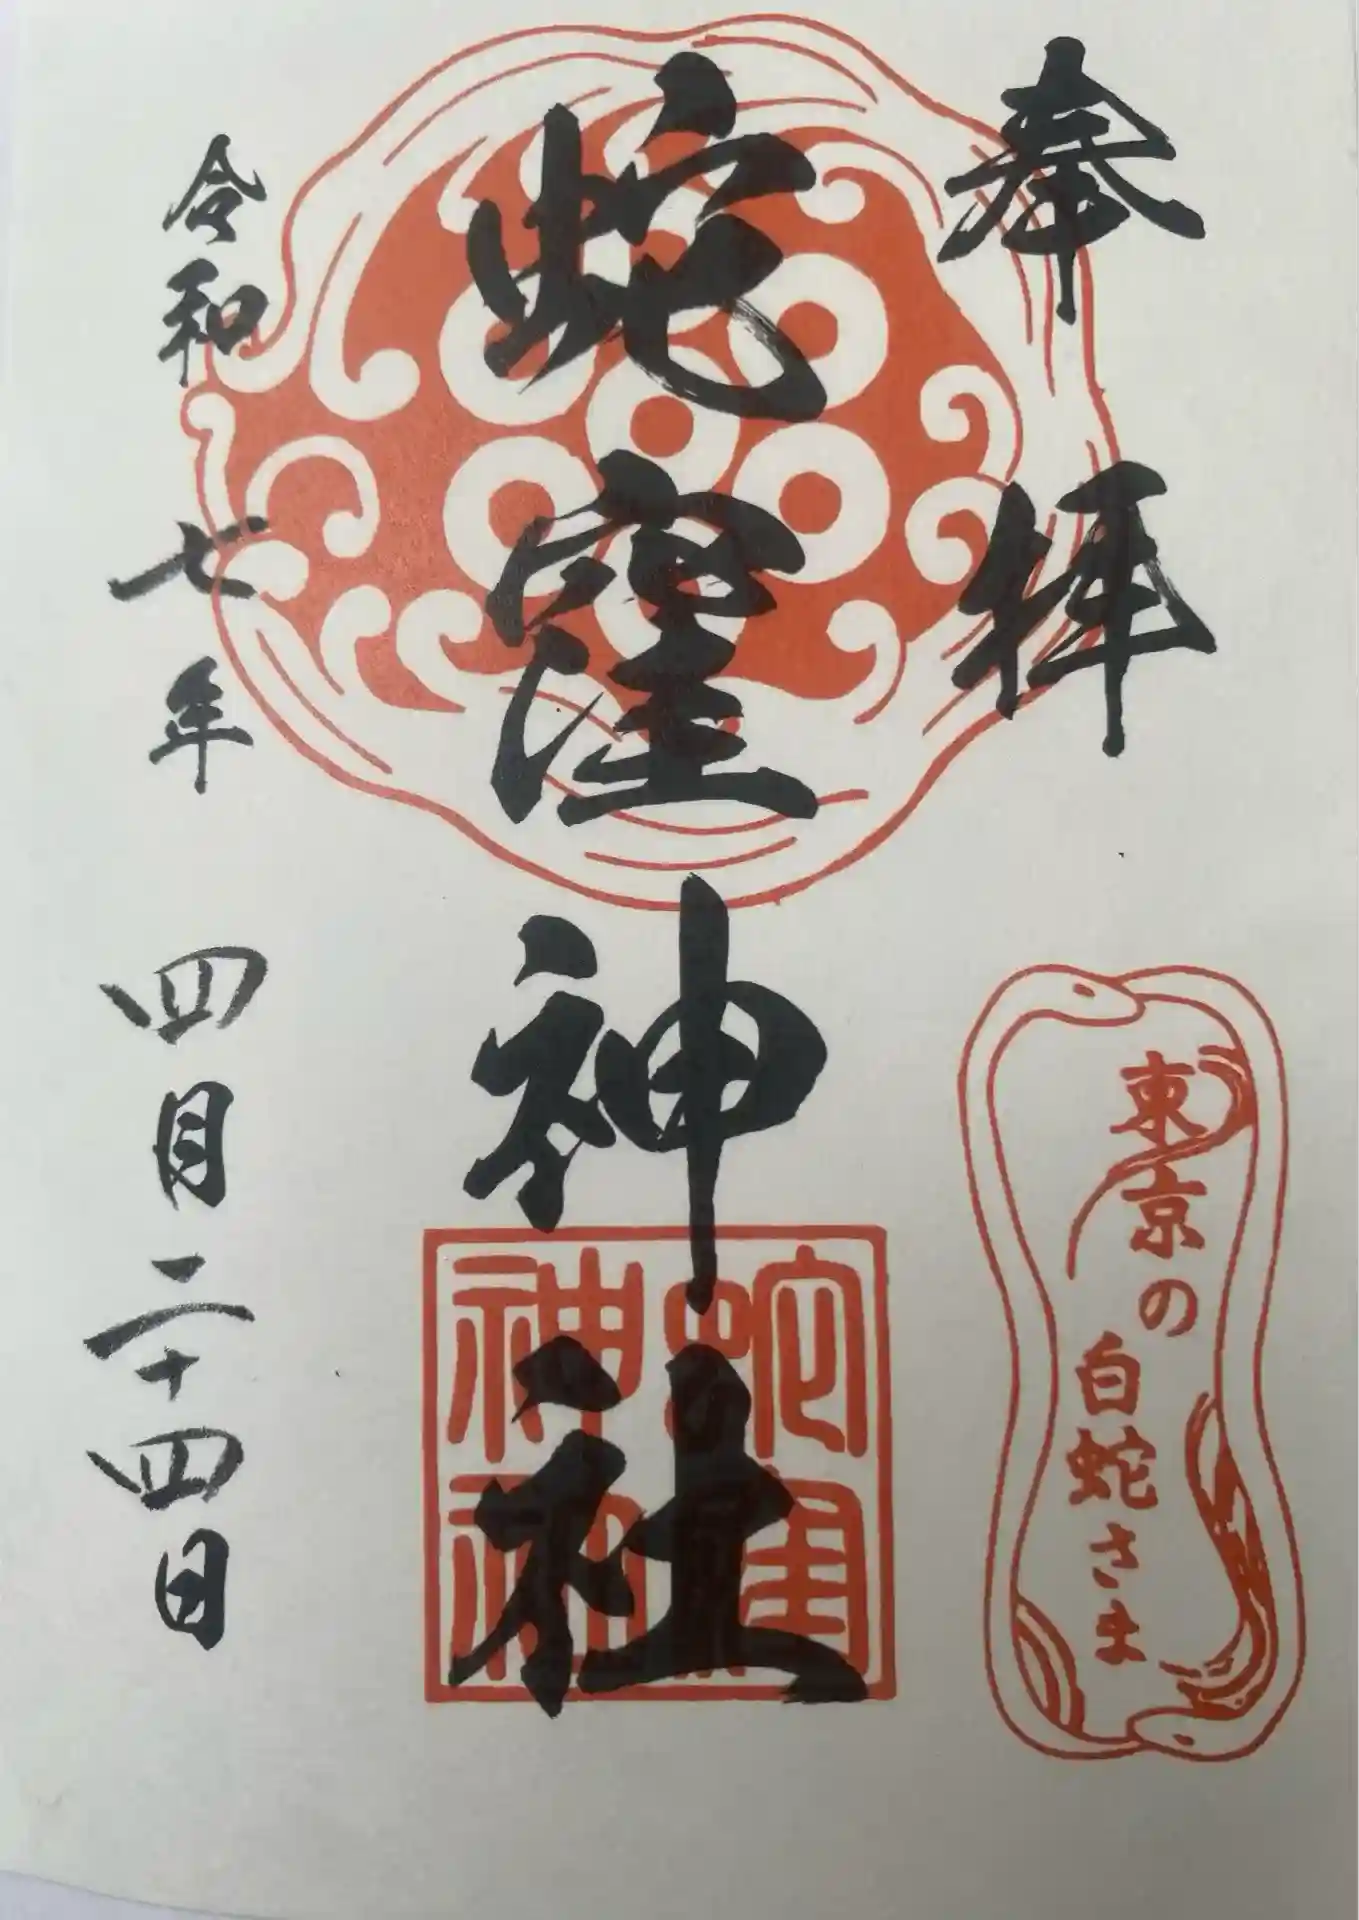 奉拝
東京の
白蛇さま
蛇窪神社
蛇窪
神社
令和七年四月二十四日